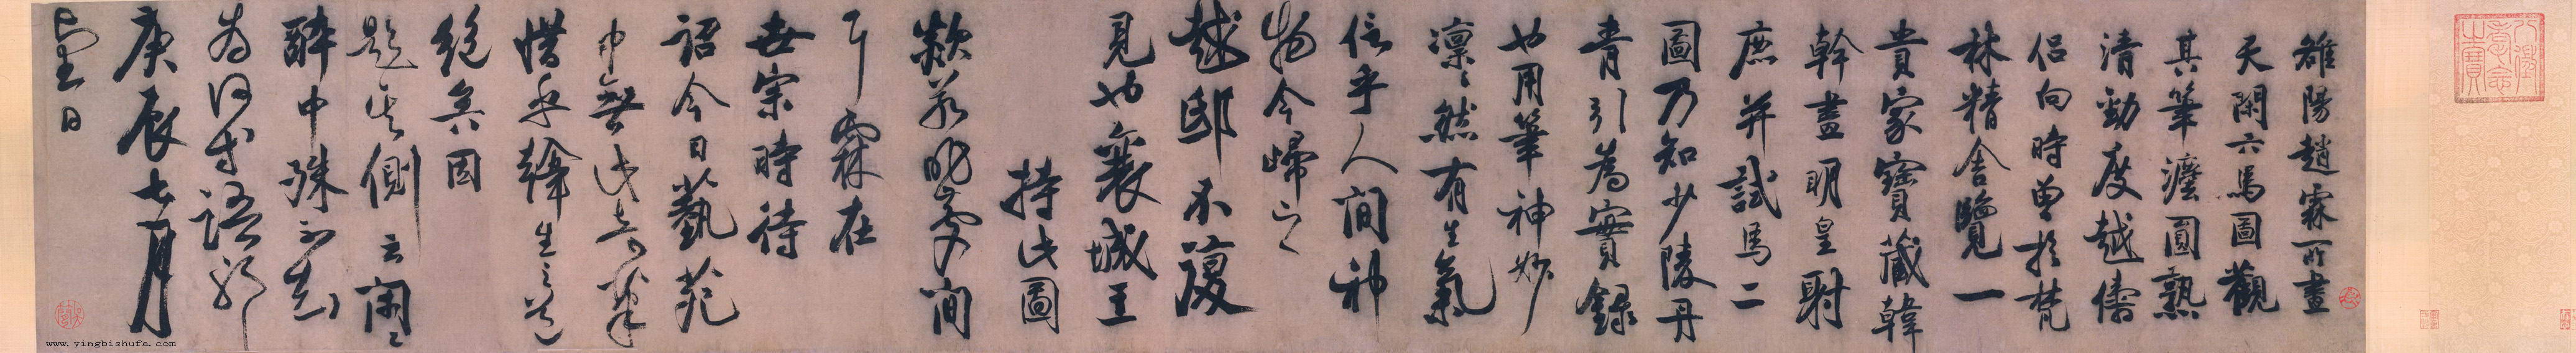 雒陽趙霖所畫
天閑六馬圖觀
其筆灋圓熟
清勁度越儔
侶向時曾於梵
林精舍覽一
貴家寶藏韓
幹畫明皇射
鹿并試馬二
圖乃知少陵丹
青引為實錄
也用筆神妙
凜〻然有生氣
信乎人間神
物今歸之
越邸不復
見也襄城王
持此圖
間
霖在
世宗時待
詔今日藝苑
中無此奇筆
惜乎韓生之道
絕矣因
題其側云閑〻
醉中殊不知
為何等語耶
庚辰七月
望日
八徵耄念之寶
www.yingbishufa.com